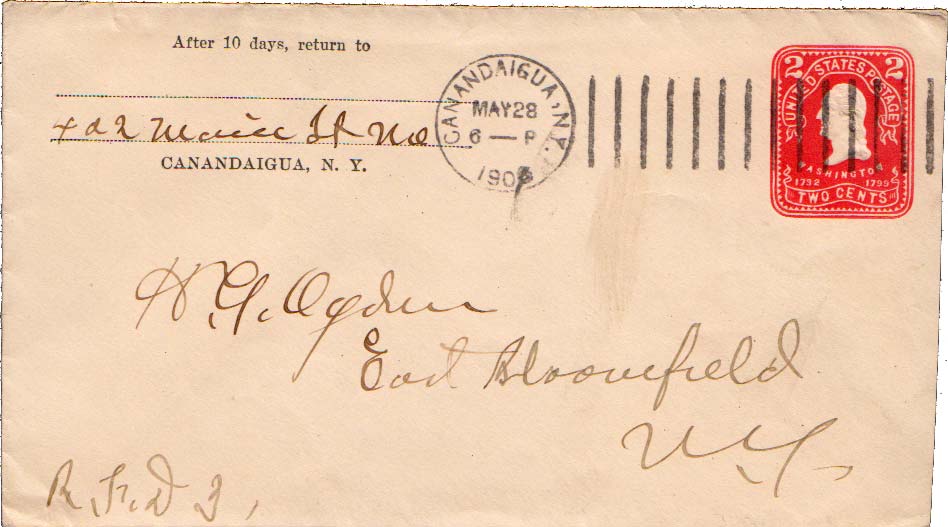 After 10 days, return to
422 Main St No
CANANDAIGUA, N. Y.
CANANDAIGUA, N.Y.
MAY 28
6 — P
190
2 2
UNITED STATES POSTAGE
WASHINGTON
1732 1799
TWO CENTS
H. G. Ogden
East Bloomfield
N.Y.
R. F. D 3,